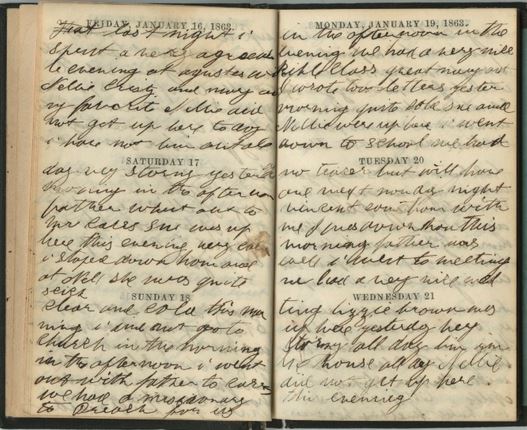 FRIDAY, JANUARY 16, 1863.
last night i
spent a very agreeab
le evening at
Nellie and mary
my favorite Nellie did
not get up here to day
i have not
SATURDAY 17
day very stormy yesterd
morning in the afternoon
father went out to
Mr she was up
here this evening very
i stayed down home
at Nell she was quite
sick
SUNDAY 18
clear and cold this mor
ning i did not go to
church in the morning
in the afternoon i went
out with father to
we had a missionary
to Preach for us
MONDAY, JANUARY 19, 1863.
in the afternoon in the
evening we had a very nice
bible class great many out
i wrote two letters yester
morning quite cold she and
Nellie were up here i went
down to school we had
TUESDAY 20
no teacer but will have
one next monday night
vincent come home with
me down home this
morning father was
well i went to meeting
we had a very nice mee
WEDNESDAY 21
ting lizzie brown was
up here yesterday very
stormy all day
the house all day Nellie
did not get up here
this evening